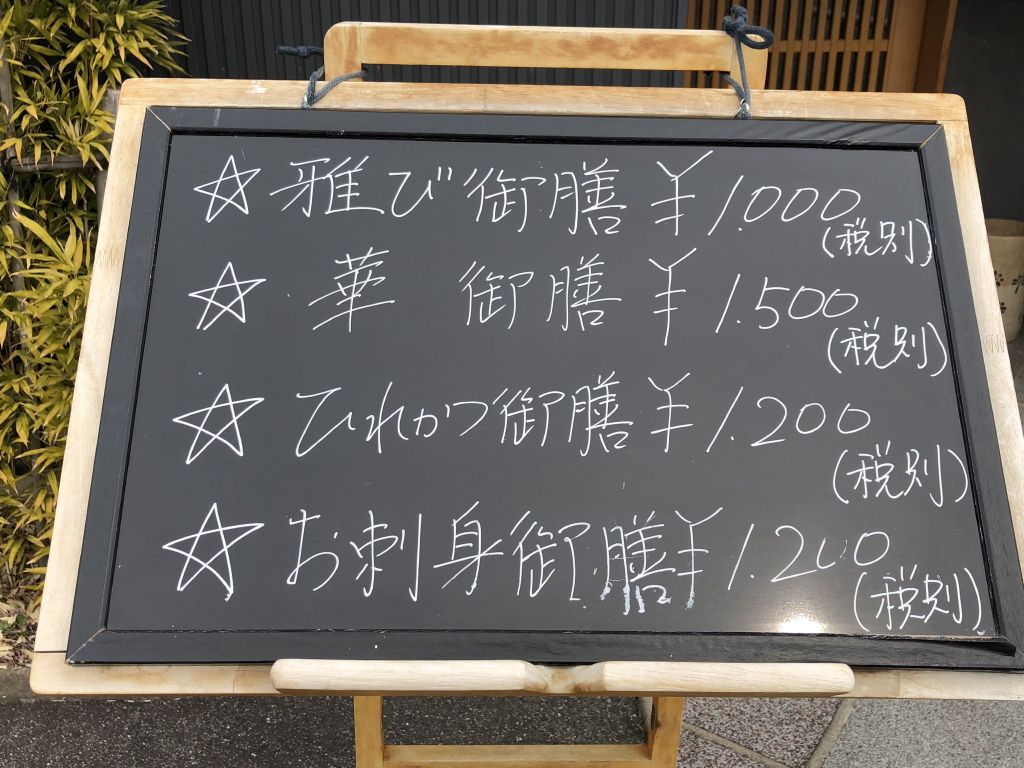 ☆雅び御膳 ¥1.000
(税別)
☆華 御膳 ¥1.500
(税別)
☆ひれかつ御膳 ¥1.200
(税別)
☆お刺身御膳 ¥1.200
(税別)